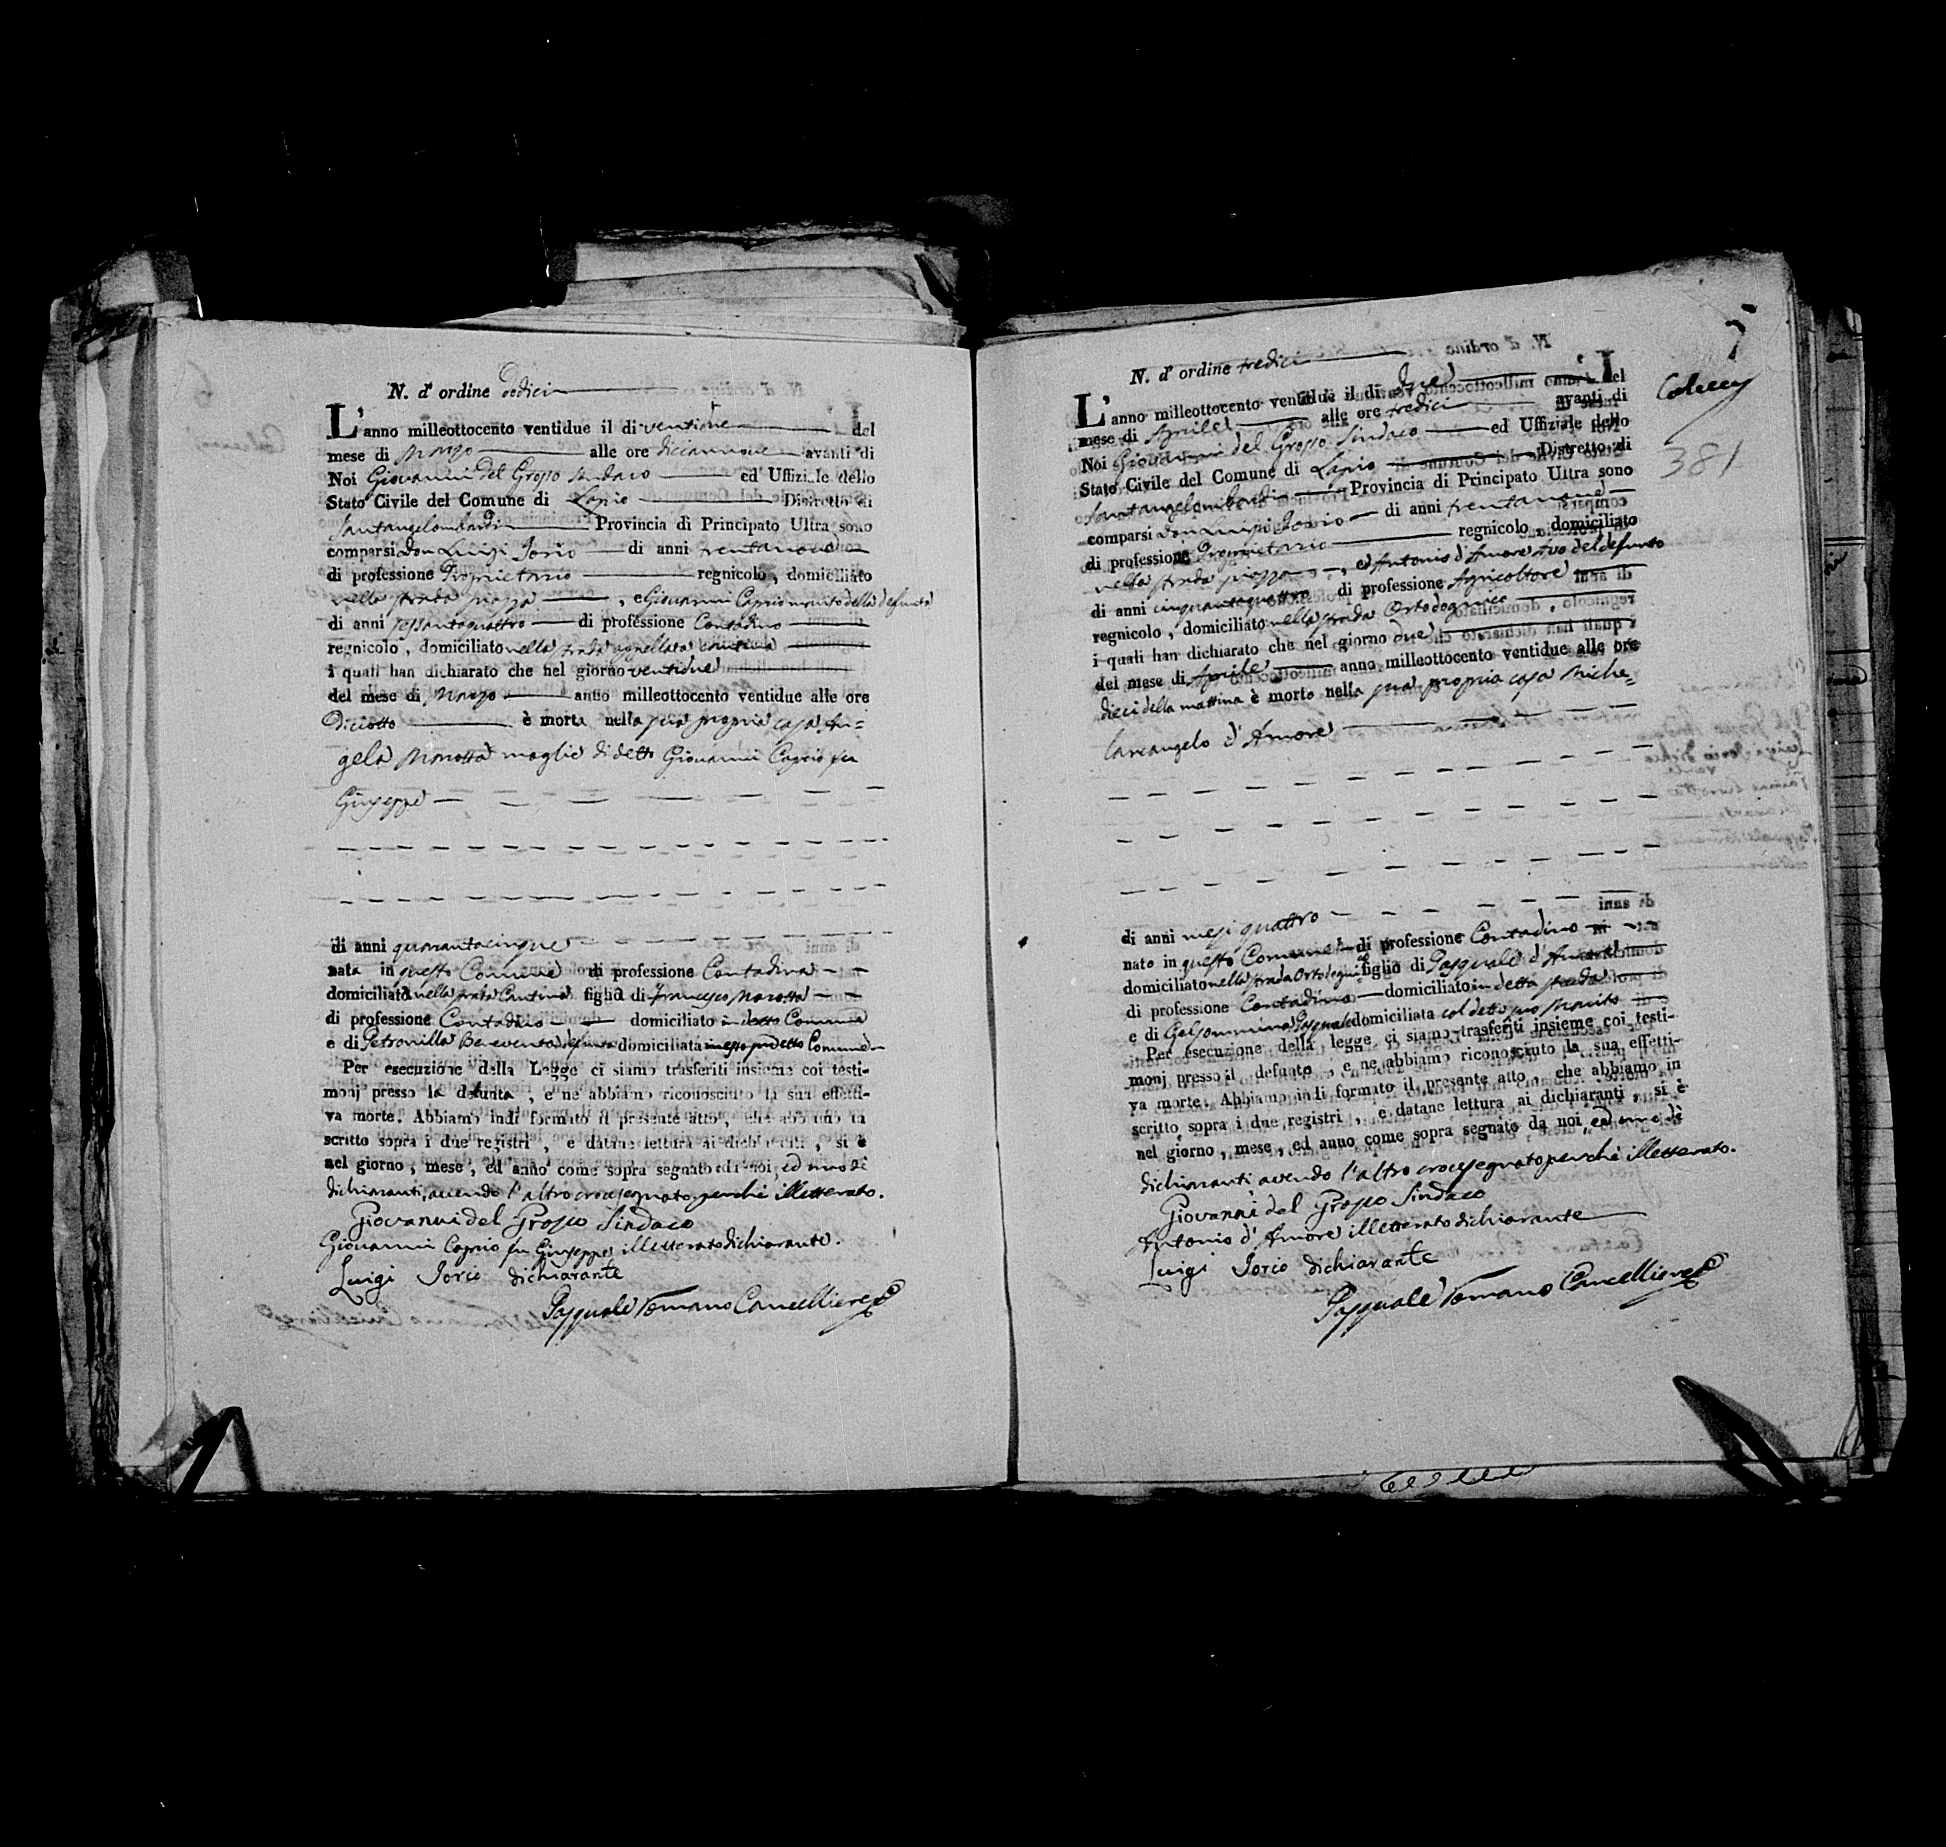 N. d' ordine dodici
L'anno milleottocento ventidue il di ventidue del
mese di Marzo alle ore diciannove avanti di
Noi Giovanni del Grosso Sindaco ed Uffiziale dello
Stato Civile del Comune di Lapio Distretto di
Santangelombardi Provincia di Principato Ultra sono
comparsi Don Luigi Iorio di anni trentanove
di professione Proprietario regnicolo, domiciliato
nella strada piazza, e Giovanni Caprio marito della defunta
di anni sessantaquattro di professione Contadino
regnicolo, domiciliato nella strada cantina
i quali han dichiarato che nel giorno ventidue
del mese di Marzo anno milleottocento ventidue alle ore
diciotto è morta nella sua propria casa An=
gela Marotta moglie di detto Giovanni Caprio fu
Giuseppe
di anni quarantacinque
nata in questo Comune di professione Contadina
domiciliata nella strada Cantina figlia di Francesco Marotta
di professione Contadino domiciliato in detto Comune
e di Petronilla Benevento defunta domiciliata in esso predetto Comune
Per esecuzione della Legge ci siamo trasferiti insieme coi testi-
monj presso la defunta, e ne abbiamo riconosciuto la sua effetti-
va morte. Abbiamo indi formato il presente atto, che abbiamo in
scritto sopra i due registri, e datane lettura ai dichiaranti, si è
nel giorno, mese, ed anno come sopra segnato da noi, ed uno di
dichiaranti, avendo l'altro crocesegnato perchè illetterato.
Giovanni del Grosso Sindaco
Giovanni Caprio fu Giuseppe illetterato dichiarante.
Luigi Iorio dichiarante
Pasquale Romano Cancelliere
N. d' ordine tredici
L'anno milleottocento ventidue il di due del
mese di Aprile alle ore tredici avanti di
Noi Giovanni del Grosso Sindaco ed Uffiziale dello
Stato Civile del Comune di Lapio Distretto di
Santangelombardi Provincia di Principato Ultra sono
comparsi Don Luigi Iorio di anni trentanove
di professione Proprietario regnicolo, domiciliato
nella strada piazza, ed Antonio d'Amore Avo del defunto
di anni cinquantaquattro di professione Agricoltore
regnicolo, domiciliato nella strada Ortodognico
i quali han dichiarato che nel giorno due
del mese di Aprile anno milleottocento ventidue alle ore
dieci della mattina è morto nella sua propria casa Miche=
larcangelo d'Amore
di anni mesi quattro
nato in questo Comune di professione Contadino
domiciliato nella strada figlio di Pasquale d'Amore
di professione Contadino domiciliato in detta strada
e di Gelsommina Pasquale domiciliata col detto suo Marito
Per esecuzione della legge ci siamo trasferiti insieme coi testi-
monj presso il defunto, e ne abbiamo riconosciuto la sua effetti-
va morte. Abbiamo indi formato il presente atto, che abbiamo in
scritto sopra i due registri, e datane lettura ai dichiaranti, si è
nel giorno, mese, ed anno come sopra segnato da noi, ed uno di
dichiaranti avendo l'altro crocesegnato perchè illetterato.
Giovanni del Grosso Sindaco
Antonio d'Amore illetterato dichiarante
Luigi Iorio dichiarante
Pasquale Romano Cancelliere
7
381